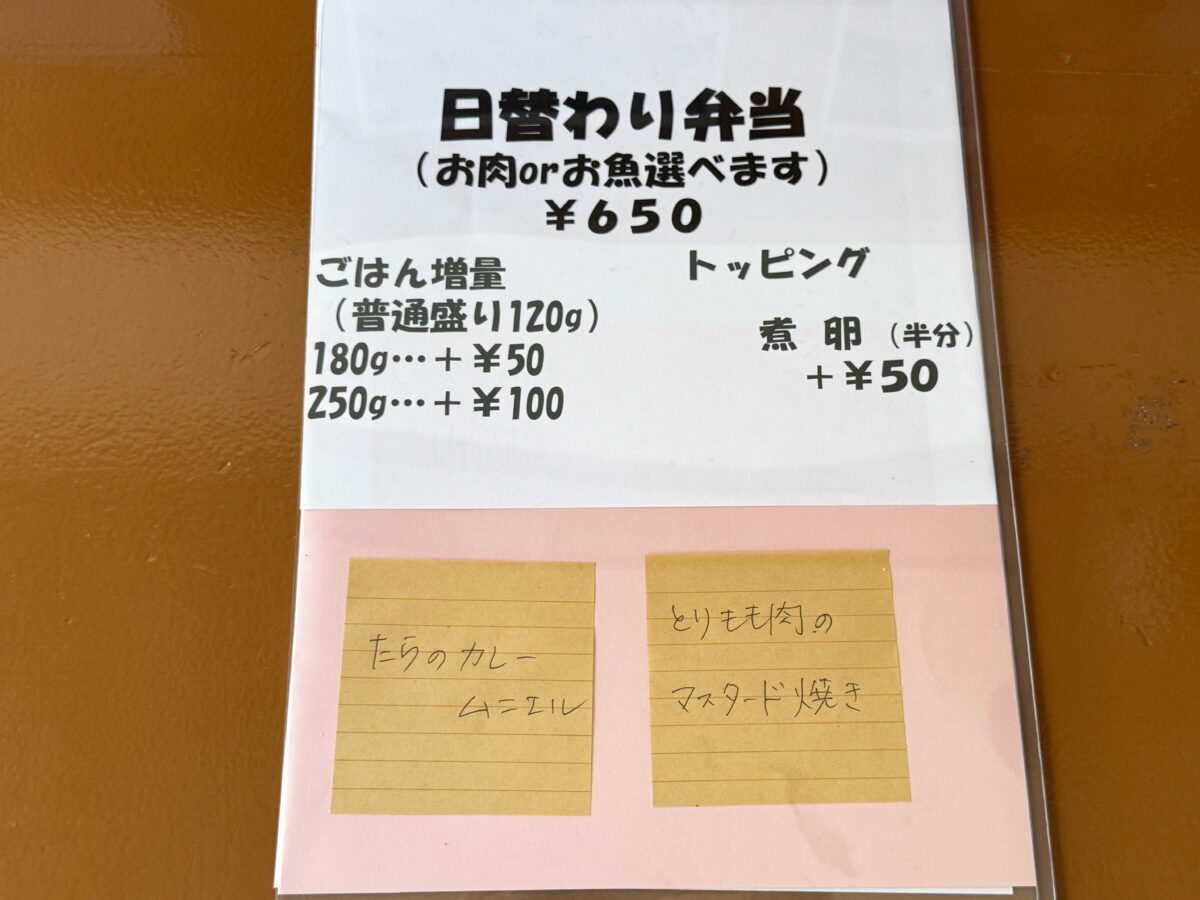 日替わり弁当
（お肉orお魚選べます）
￥650
ごはん増量
（普通盛り120g）
180g…＋￥50
250g…＋￥100
トッピング
煮 卵（半分）
＋￥50
たらのカレー
ムニエル
とりもも肉の
マスタード焼き